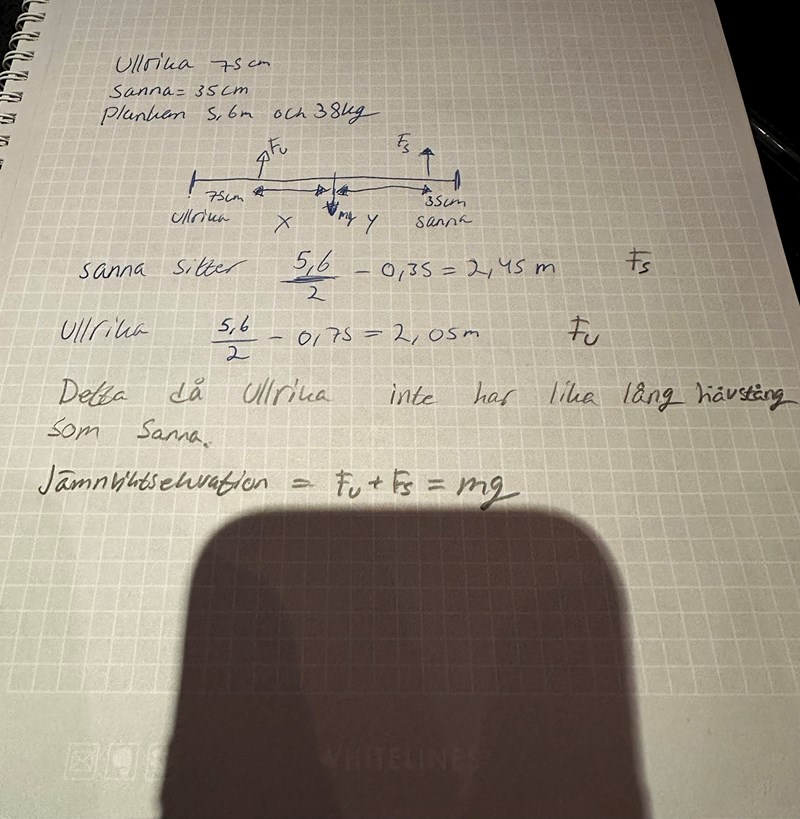 Ullrika 75cm
Sanna = 35cm
Planken 5,6m och 38kg
Fu Fs
75cm 35cm
Ullrika X mg Y Sanna
Sanna sitter 5,6/2 - 0,35 = 2,45 m Fs
Ullrika 5,6/2 - 0,75 = 2,05m Fu
Detta då Ullrika inte har lika lång hävstång
som Sanna.
Jämnviktsekvation = Fu + Fs = mg
WHITELINES